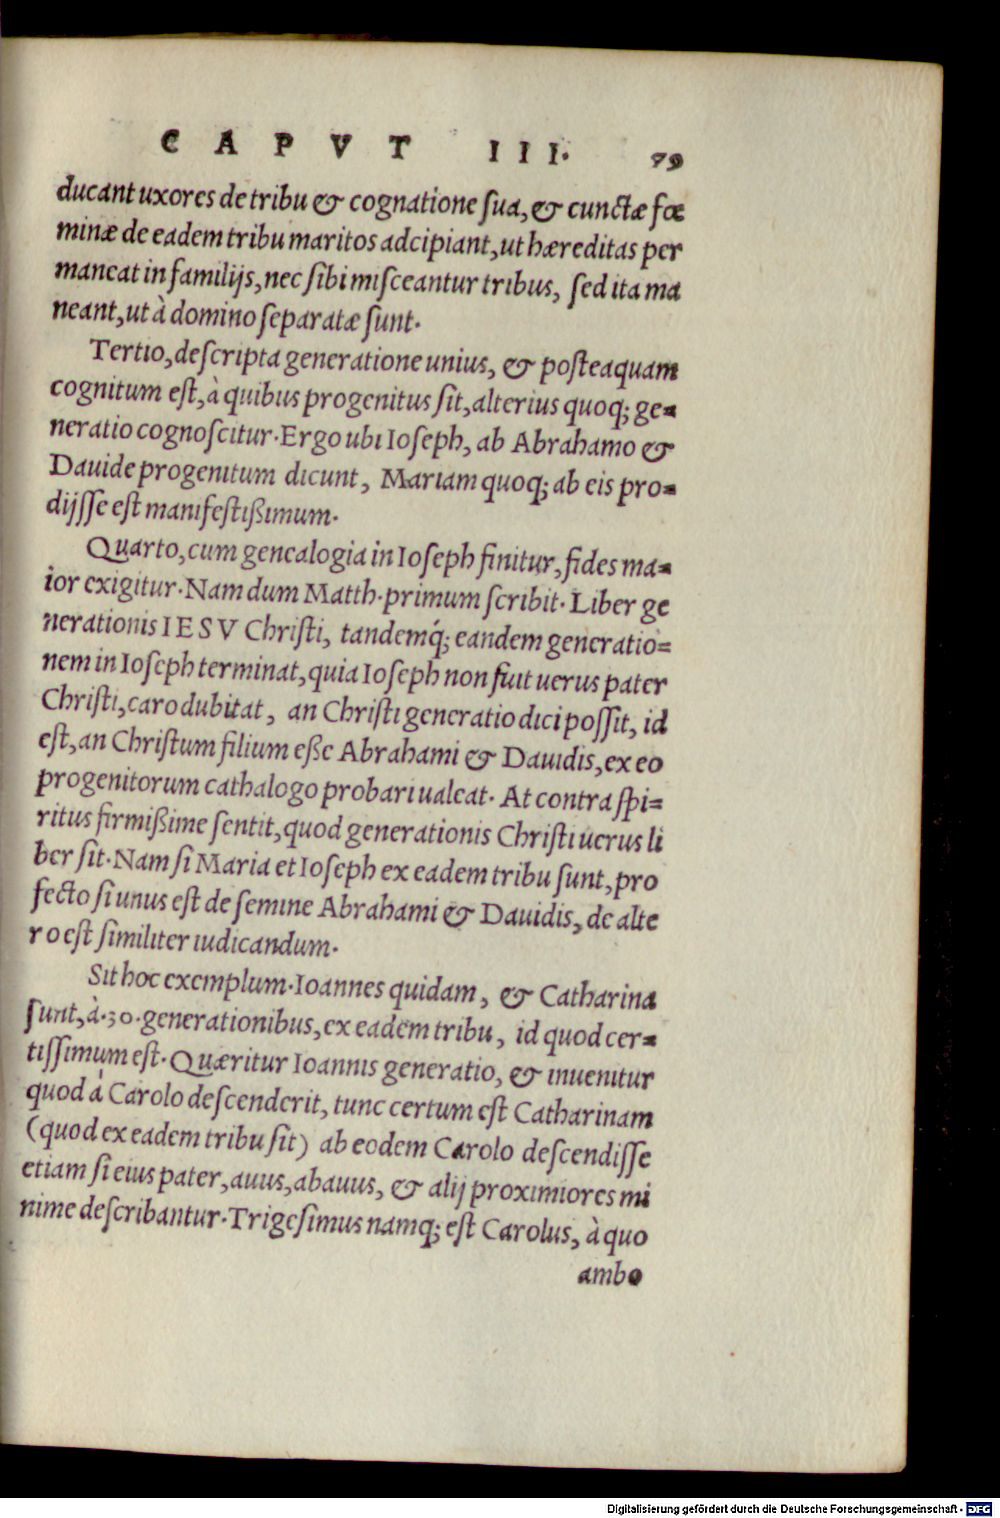 CAPVT III. 79
ducant uxores de tribu & cognatione sua, & cunctæ fœ
minæ de eadem tribu maritos adcipiant, ut hæreditas per
maneat in familijs, nec sibi misceantur tribus, sed ita ma
neant, ut à domino separatæ sunt.
Tertio, descripta generatione unius, & posteaquam
cognitum est, à quibus progenitus sit, alterius quoq; ge=
neratio cognoscitur. Ergo ubi Ioseph, ab Abrahamo &
Dauide progenitum dicunt, Mariam quoq; ab eis pro=
dijsse est manifestißimum.
Quarto, cum genealogia in Ioseph finitur, fides ma=
ior exigitur. Nam dum Matth. primum scribit. Liber ge
nerationis IESV Christi, tandemq́; eandem generatio=
nem in Ioseph terminat, quia Ioseph non fuit uerus pater
Christi, caro dubitat, an Christi generatio dici possit, id
est, an Christum filium eße Abrahami & Dauidis, ex eo
progenitorum cathalogo probari ualeat. At contra spi=
ritus firmißime sentit, quod generationis Christi uerus li
ber sit. Nam si Maria et Ioseph ex eadem tribu sunt, pro
fecto si unus est de semine Abrahami & Dauidis, de alte
ro est similiter iudicandum.
Sit hoc exemplum. Ioannes quidam, & Catharina
sunt, à .30. generationibus, ex eadem tribu, id quod cer=
tissimum est. Quæritur Ioannis generatio, & inuenitur
quod á Carolo descenderit, tunc certum est Catharinam
(quod ex eadem tribu sit) ab eodem Carolo descendisse
etiam si eius pater, auus, abauus, & alij proximiores mi
nime describantur. Trigesimus namq; est Carolus, à quo
ambo
Digitalisierung gefördert durch die Deutsche Forschungsgemeinschaft - DFG